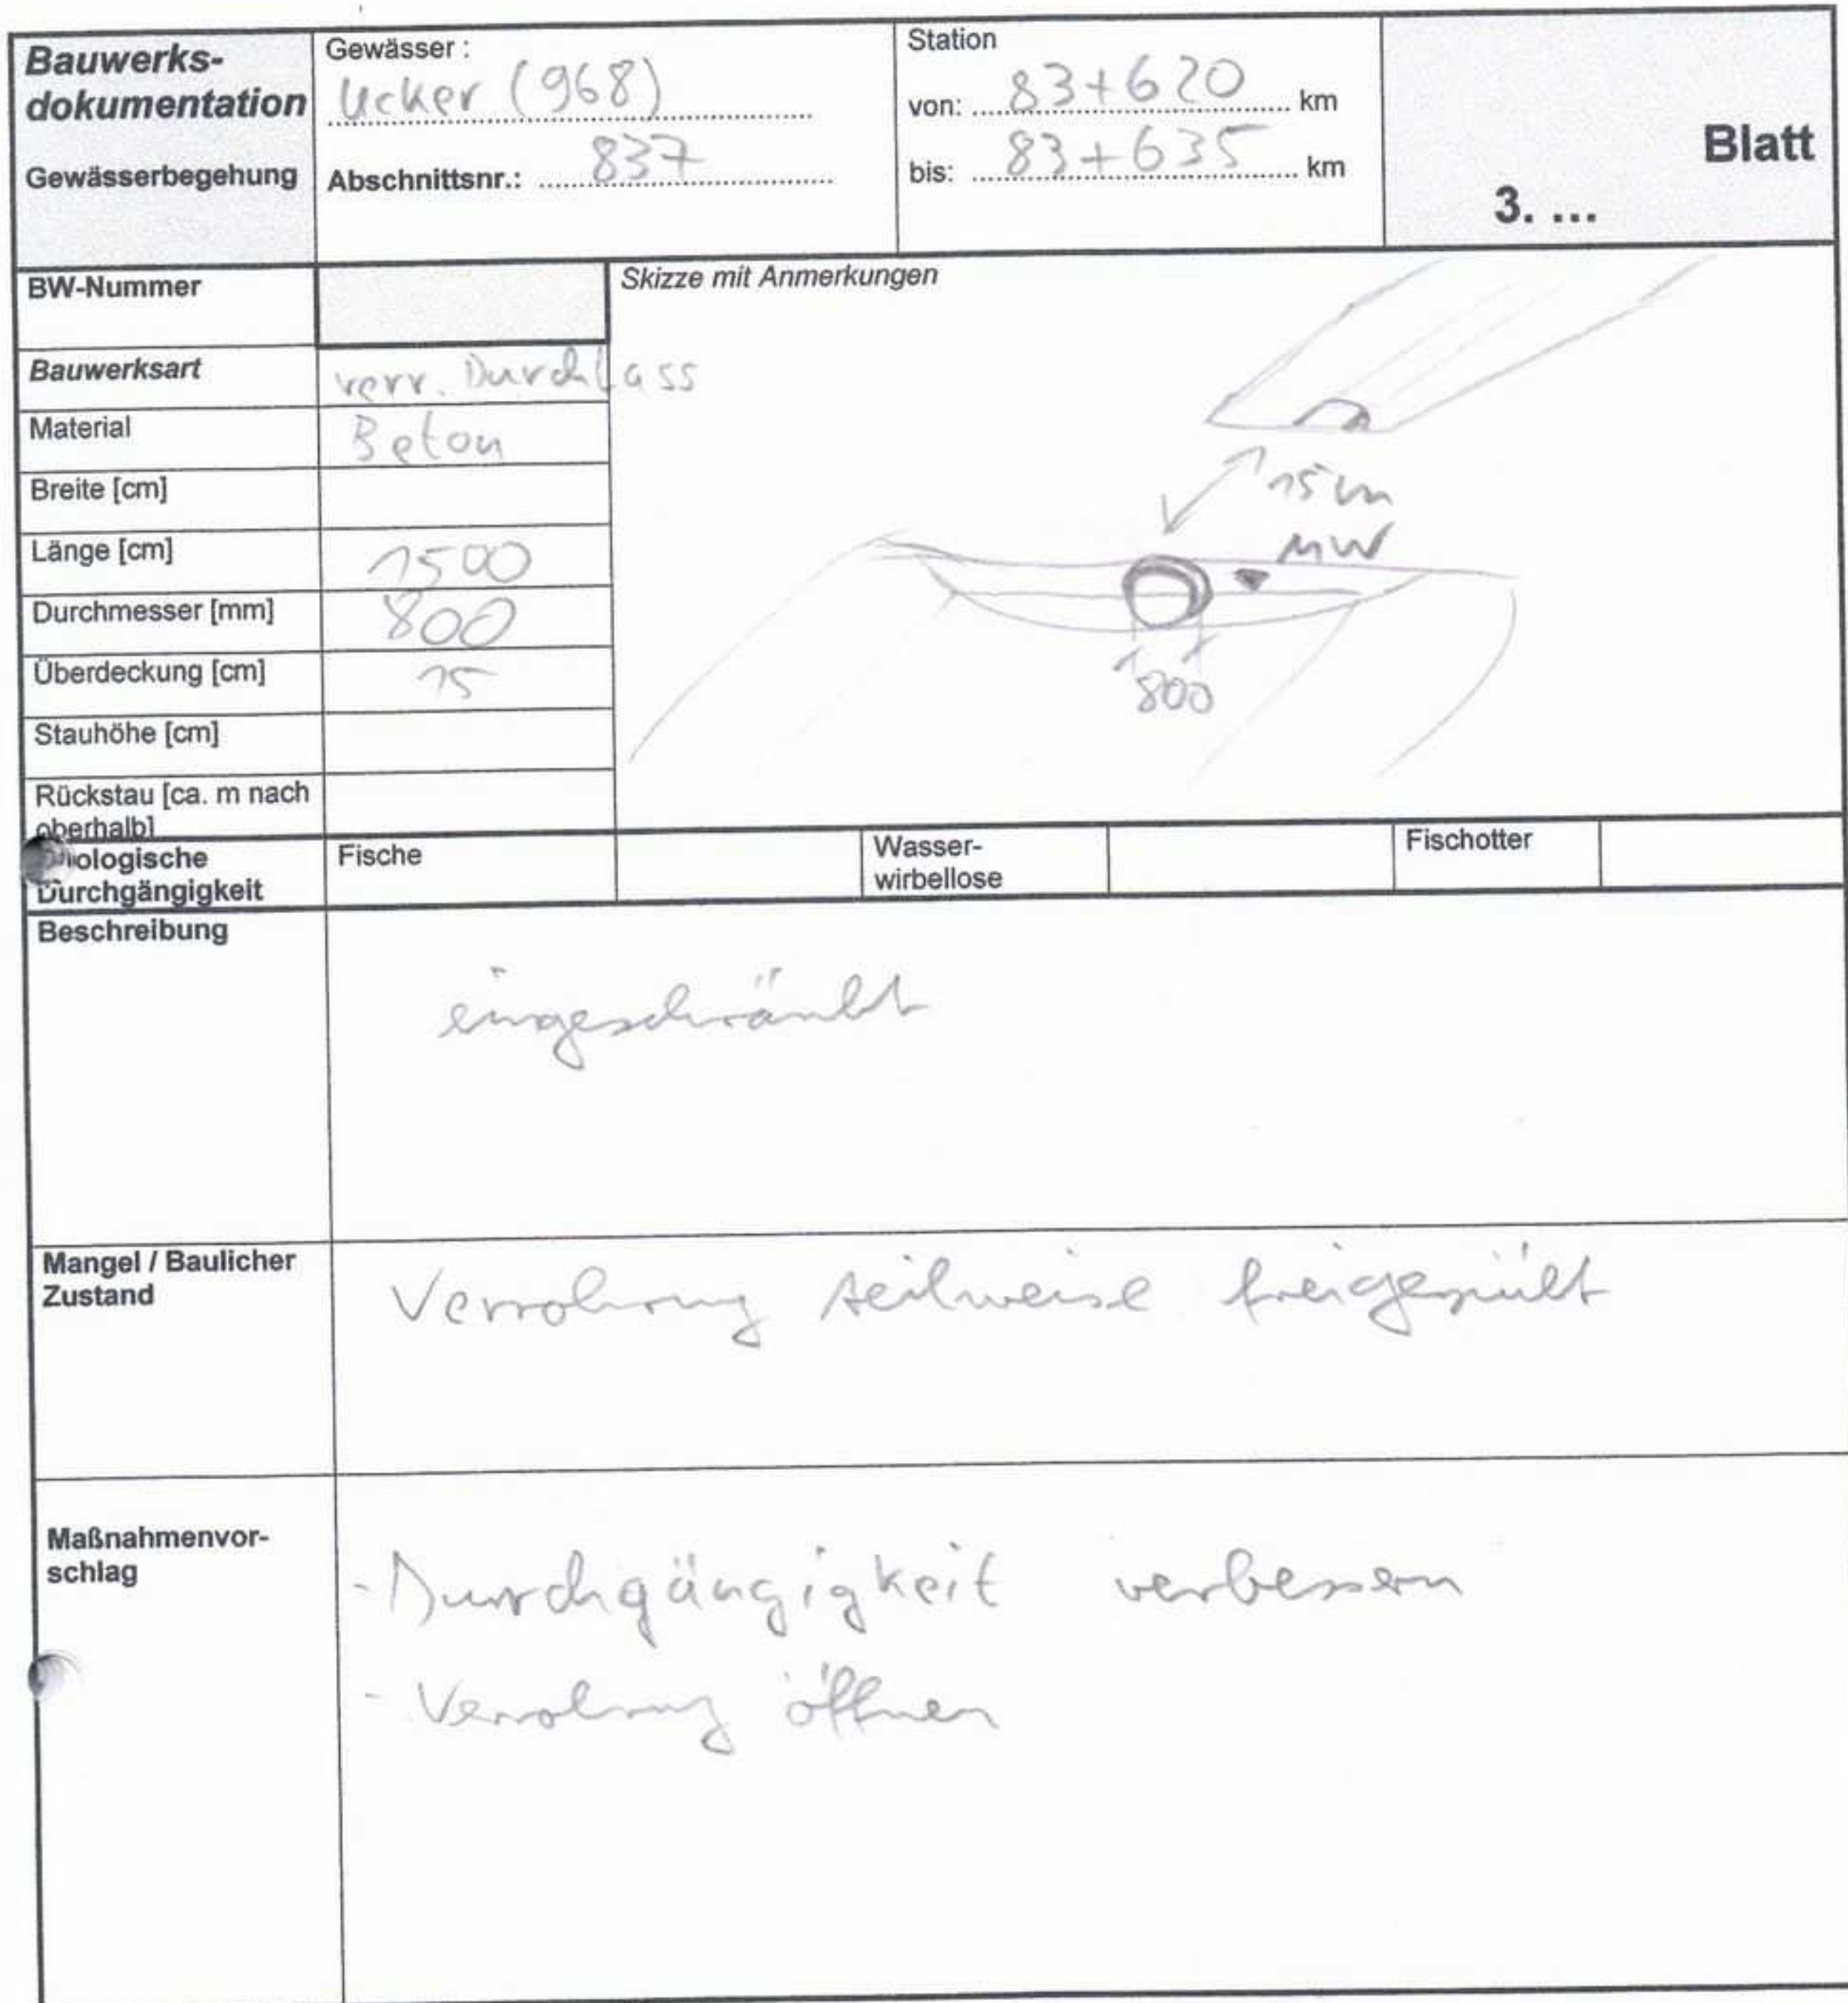 Bauwerks-
dokumentation
Gewässerbegehung
Gewässer :
Ucker (968)
Abschnittsnr.: 837
Station
von: 83+620 km
bis: 83+635 km
Blatt
3. ...
BW-Nummer
Skizze mit Anmerkungen
Bauwerksart verr. Durchlass
Material Beton
Breite [cm]
Länge [cm] 1500
Durchmesser [mm] 800
Überdeckung [cm] 15
Stauhöhe [cm]
Rückstau [ca. m nach
oberhalb]
15 m
MW
800
Durchgängigkeit
Fische
Wasser-
wirbellose
Fischotter
Beschreibung
eingeschränkt
Mangel / Baulicher
Zustand
Verrohrung teilweise freigespült
Maßnahmenvor-
schlag
- Durchgängigkeit verbessern
- Verrohrung öffnen